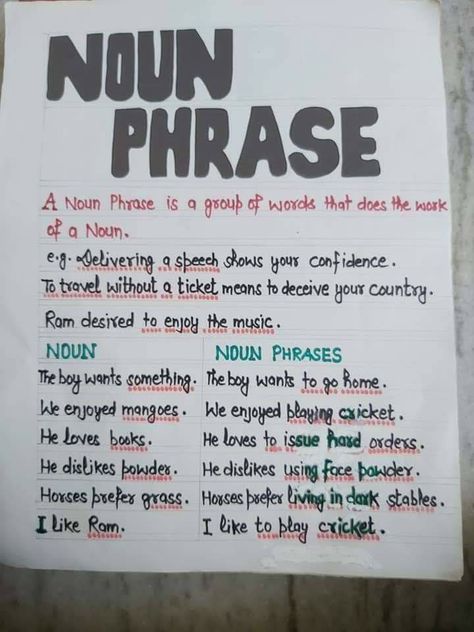 NOUN
PHRASE
A Noun Phrase is a group of words that does the work
of a Noun.
e.g. Delivering a speech shows your confidence.
To travel without a ticket means to deceive your country.
Ram desired to enjoy the music.
NOUN NOUN PHRASES
The boy wants something. The boy wants to go home.
We enjoyed mangoes. We enjoyed playing cricket.
He loves books. He loves to issue hard orders.
He dislikes powder. He dislikes using face powder.
Horses prefer grass. Horses prefer living in dark stables.
I like Ram. I like to play cricket.